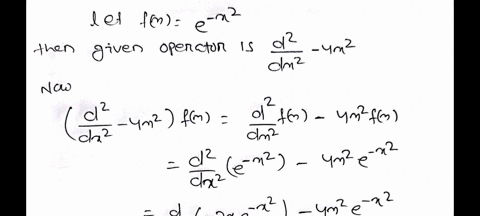 let f(x) = e^{-x^2}
then given operator is d^2/dx^2 - 4x^2
Now
(d^2/dx^2 - 4x^2) f(x) = d^2/dx^2 f(x) - 4x^2 f(x)
= d^2/dx^2 (e^{-x^2}) - 4x^2 e^{-x^2}
= d (-2x e^{-x^2}) - 4x^2 e^{-x^2}